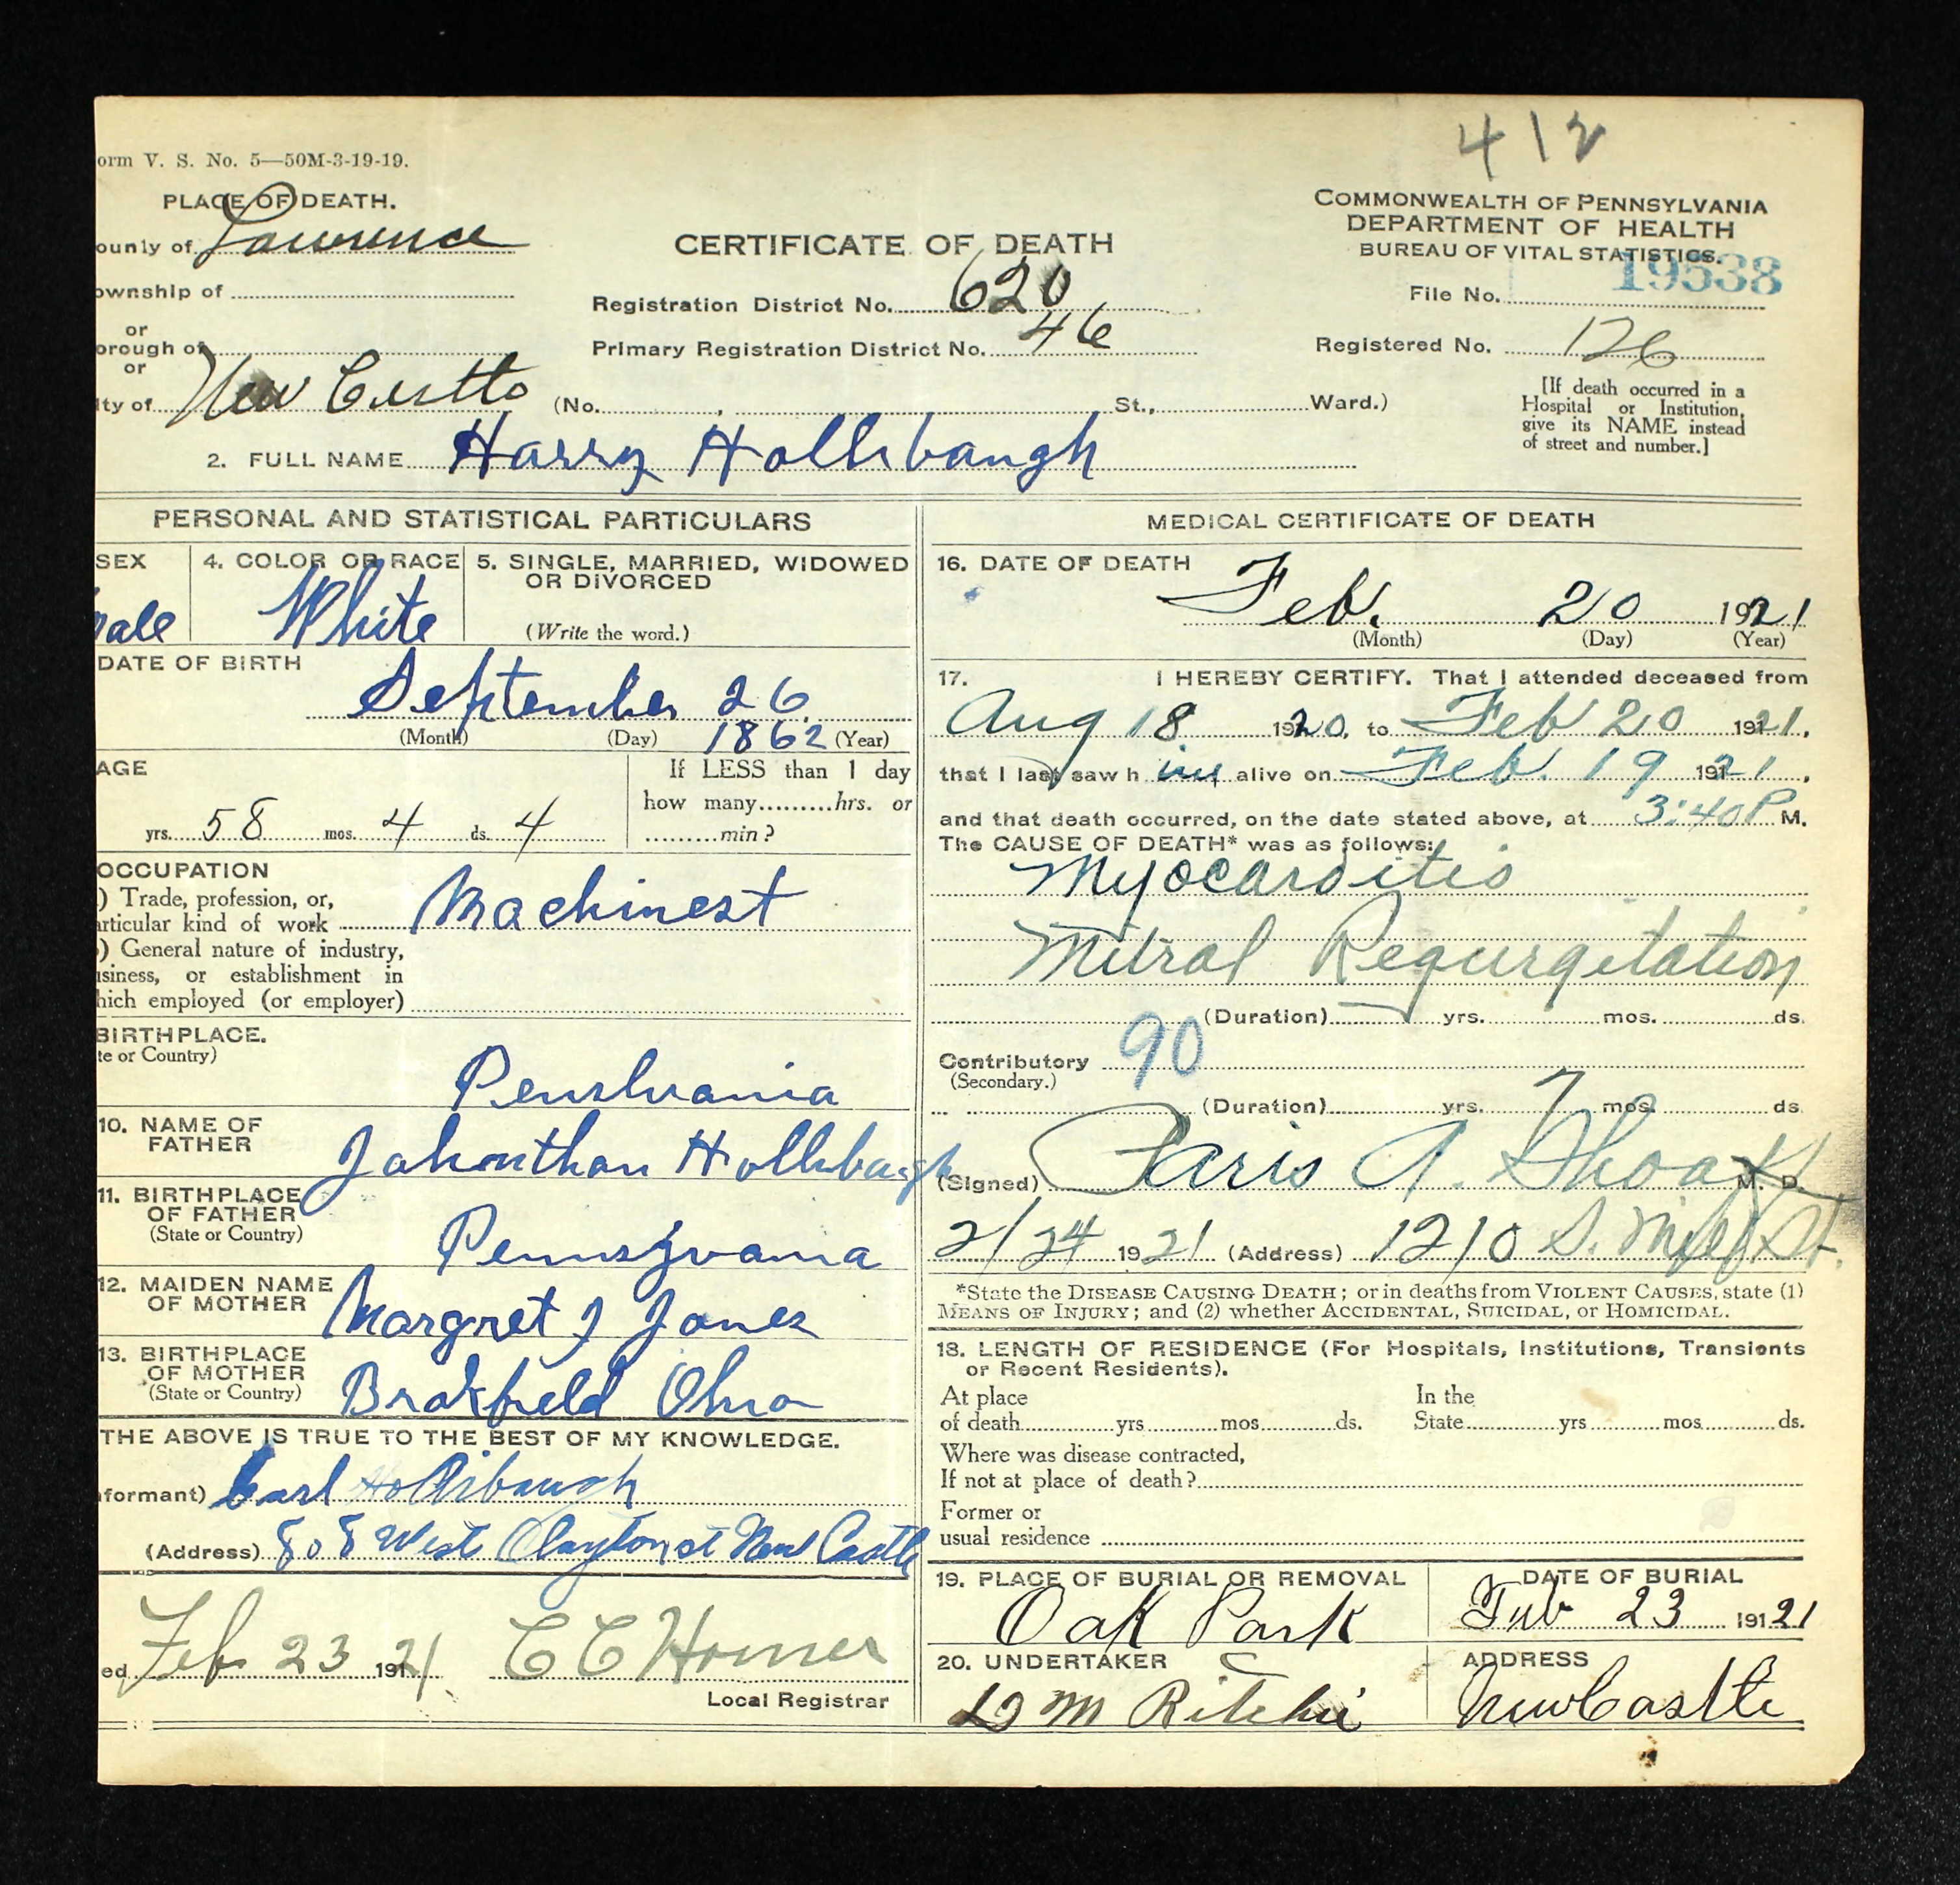 412
orm V. S. No. 5—50M-3-19-19.
PLACE OF DEATH.
ounty of Lawrence
ownship of
or
orough of
or
ity of New Castle
CERTIFICATE OF DEATH
Registration District No. 620
Primary Registration District No. 46
COMMONWEALTH OF PENNSYLVANIA
DEPARTMENT OF HEALTH
BUREAU OF VITAL STATISTICS.
19538
File No.
Registered No. 126
(No. , St., Ward.)
[If death occurred in a
Hospital or Institution,
give its NAME instead
of street and number.]
2. FULL NAME Harry Hollibaugh
PERSONAL AND STATISTICAL PARTICULARS
SEX
male
4. COLOR OR RACE
White
5. SINGLE, MARRIED, WIDOWED
OR DIVORCED
(Write the word.)
DATE OF BIRTH
September 26
1862
(Month) (Day) (Year)
AGE
yrs. 58 mos. 4 ds. 4
If LESS than 1 day
how many.........hrs. or
.........min?
OCCUPATION
) Trade, profession, or,
articular kind of work Machinest
) General nature of industry,
usiness, or establishment in
hich employed (or employer)
BIRTHPLACE.
te or Country)
Penslvania
10. NAME OF
FATHER
Jahonthan Hollibaugh
11. BIRTHPLACE
OF FATHER
(State or Country)
Pennsyvania
12. MAIDEN NAME
OF MOTHER
Margret J Jones
13. BIRTHPLACE
OF MOTHER
(State or Country)
Brakfield Ohio
THE ABOVE IS TRUE TO THE BEST OF MY KNOWLEDGE.
formant) Carl Hollibaugh
(Address) 808 West Clayton st New Castle
ed Feb 23 1921 C C Horner
Local Registrar
MEDICAL CERTIFICATE OF DEATH
16. DATE OF DEATH
Feb. 20 1921
(Month) (Day) (Year)
17. I HEREBY CERTIFY. That I attended deceased from
Aug 18 1920. to Feb 20 1921.
that I last saw h im alive on Feb. 19 1921.
and that death occurred, on the date stated above, at 3:40 P M.
The CAUSE OF DEATH* was as follows:
Myocarditis
Mitral Regurgitation
(Duration) yrs. mos. ds.
90
Contributory
(Secondary.)
(Duration) yrs. mos. ds.
(Signed) Paris A. Shoaff M. D.
2/24 1921 (Address) 1210 S. Mill St.
*State the DISEASE CAUSING DEATH; or in deaths from VIOLENT CAUSES, state (1)
MEANS OF INJURY; and (2) whether ACCIDENTAL, SUICIDAL, or HOMICIDAL.
18. LENGTH OF RESIDENCE (For Hospitals, Institutions, Transients
or Recent Residents).
At place
of death yrs mos ds.
In the
State yrs mos ds.
Where was disease contracted,
If not at place of death?
Former or
usual residence
19. PLACE OF BURIAL OR REMOVAL
Oak Park
DATE OF BURIAL
Feb 23 1921
20. UNDERTAKER
D M Ritchie
ADDRESS
New Castle